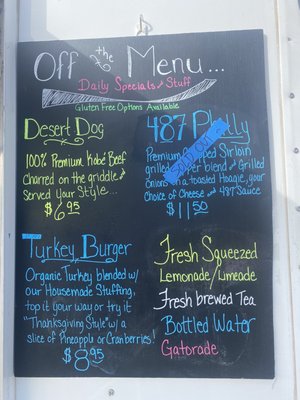 Off the Menu...
Daily Specials and Stuff
Gluten Free Options Available
Desert Dog
100% Premium Kobé Beef
Charred on the griddle and
Served Your Style...
$6.95
487 Philly
SOLD OUT
Premium Sirloin
grilled blend and Grilled
Onions on a toasted Hoagie, your
Choice of Cheese and 487 Sauce
$11.50
Turkey Burger
Organic Turkey blended w/
our Housemade Stuffing,
top it your way or try it
"Thanksgiving Style" w/ a
slice of Pineapple or Cranberries!
$8.95
Fresh Squeezed
Lemonade/Limeade
Fresh brewed Tea
Bottled Water
Gatorade